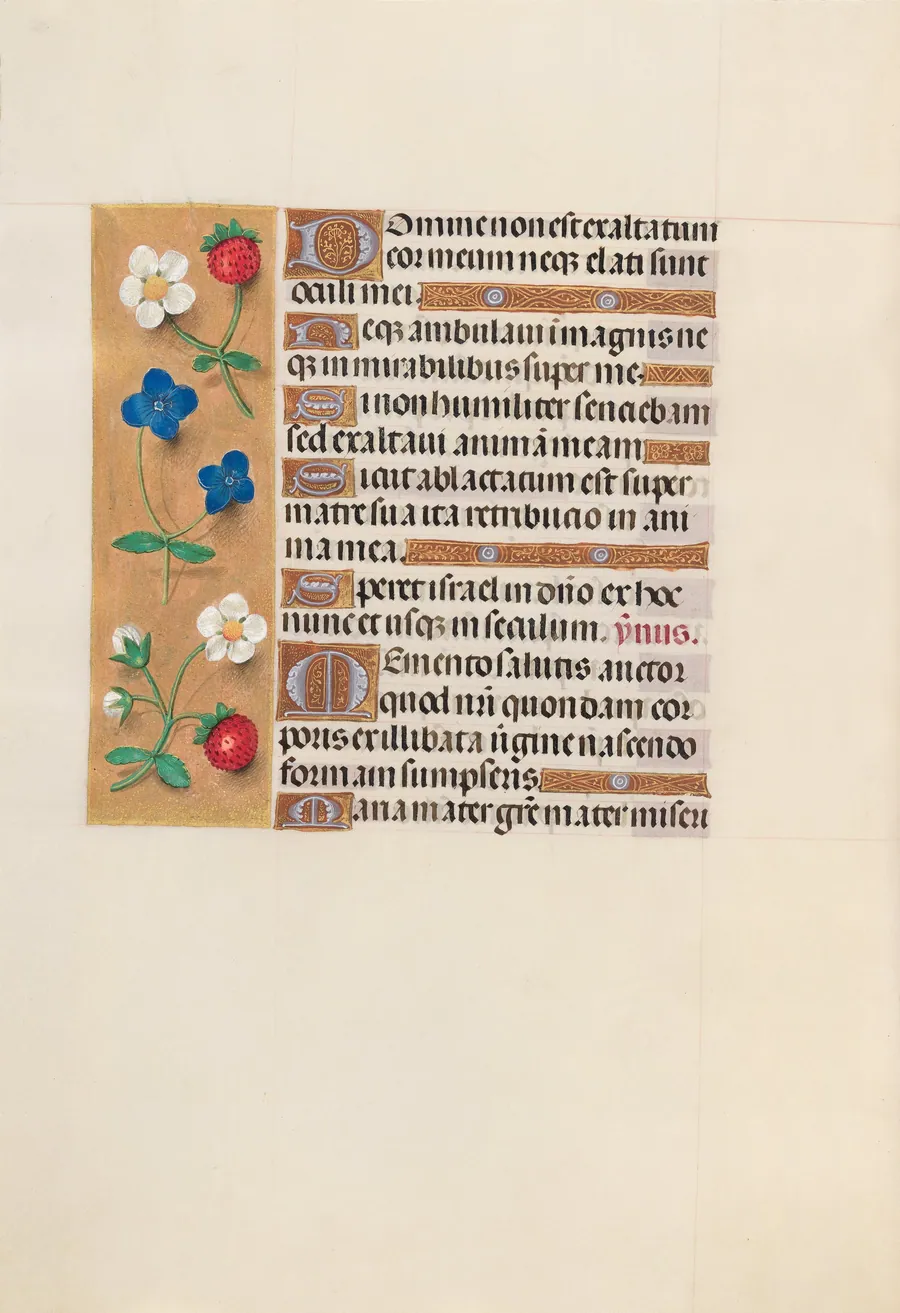 Domine non est exaltatum
cor meum neqꝫ elati sunt
oculi mei.
Neqꝫ ambulaui ī magnis ne
qꝫ in mirabilibus super me.
Si non humiliter senciebam
sed exaltaui animā meam
Sicut ablactatum est super
matre sua ita retribucio in ani
ma mea.
Speret israel in dn̄o ex hoc
nunc et usqꝫ in seculum. ȳnus.
Memento salutis auctor
quod nr̄i quondam cor
poris ex illibata ūgine nascendo
formam sumpseris
Maria mater gr̄e mater miseri